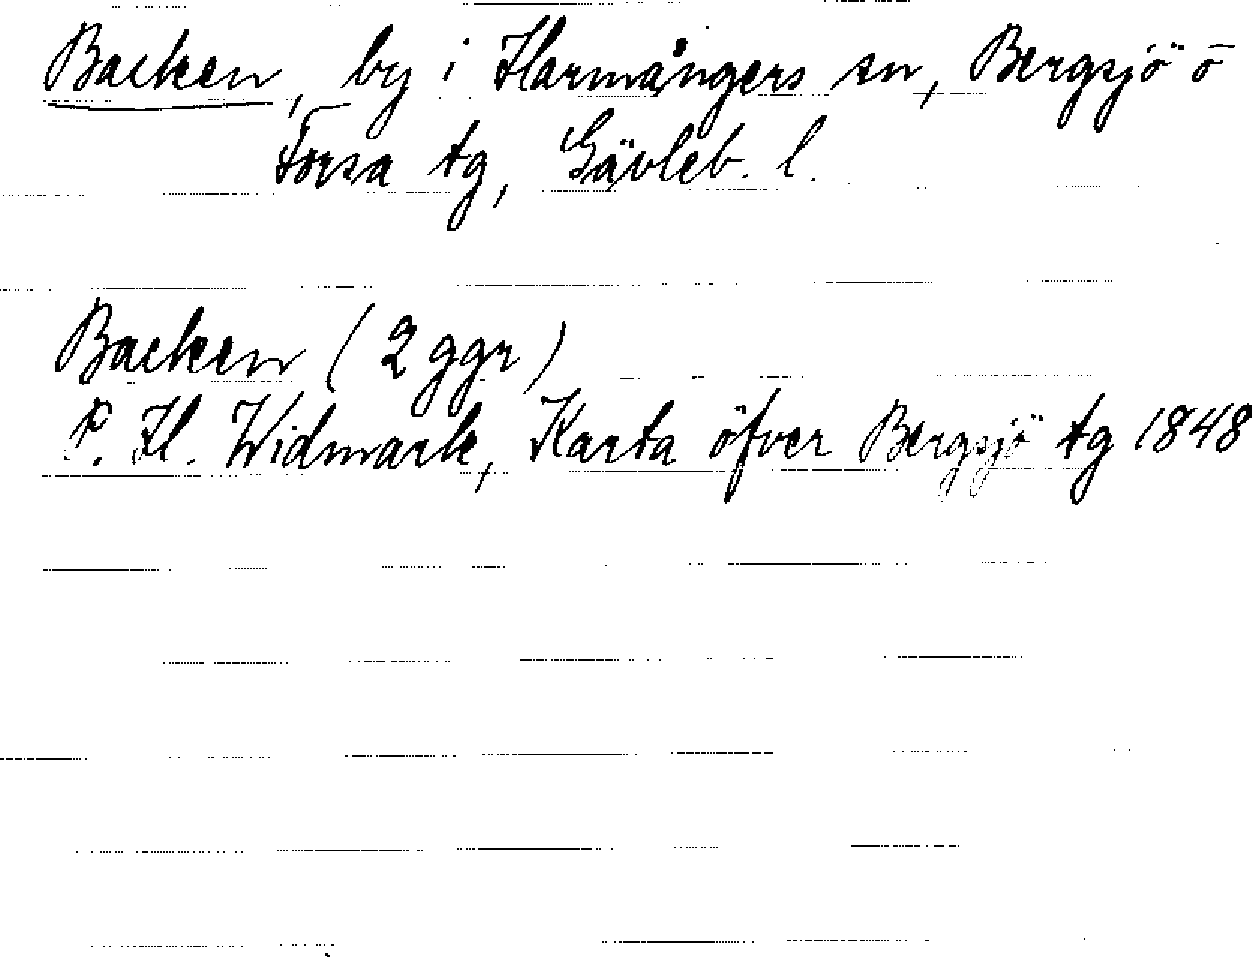 Backen, by i Harmångers sn, Bergsjö o
Forsa tg, Gävleb. l.
Backen (2 ggr)
P. H. Widmark, Karta öfver Bergsjö tg 1848